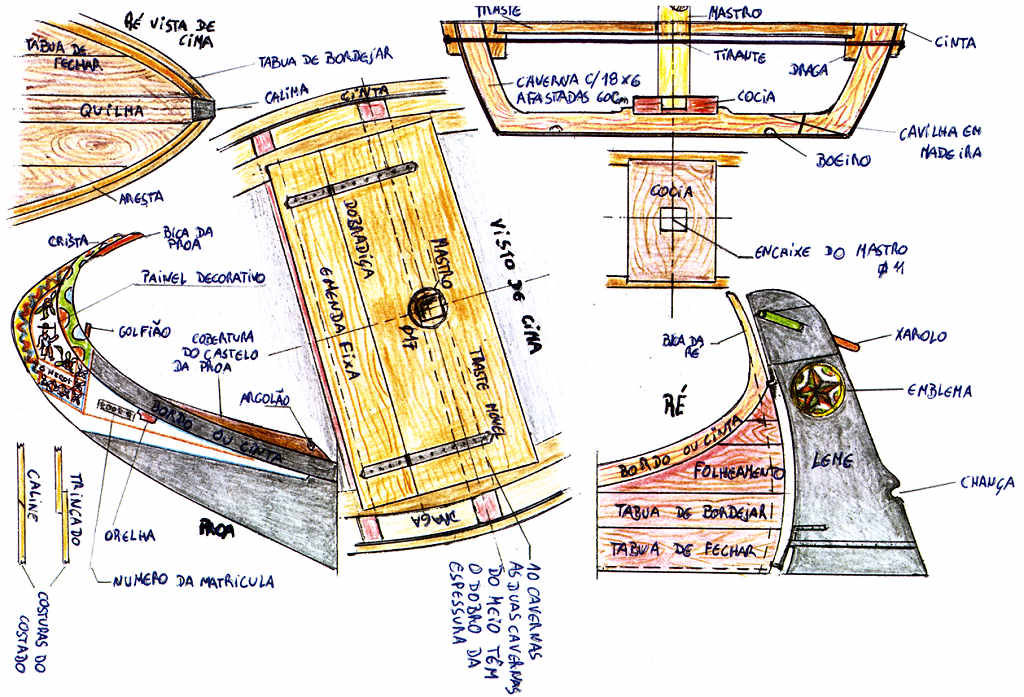 RÉ VISTA DE
CIMA
TABUA DE
FECHAR
TABUA DE BORDEJAR
QUILHA
CALIMA
ARESTA
TRASTE
MASTRO
CINTA
TIRANTE
DRAGA
CAVERNA C/18x6
AFASTADAS 60Cm
COCIA
CAVILHA EM
MADEIRA
BOEIRO
COCIA
ENCAIXE DO MASTRO
CINTA
DOBRADIÇA
MASTRO
EMENDA FIXA
VISTO DE CIMA
TRASTE MÓVEL
DRAGA
10 CAVERNAS
AS DUAS CAVERNAS
DO MEIO TÊM
O DOBRO DA
ESPESSURA
CRISTA
BICA DA
PROA
PAINEL DECORATIVO
GOLFIÃO
COBERTURA
DO CASTELO
DA PROA
ARGOLÃO
BORDO OU CINTA
PROA
ORELHA
NUMERO DA MATRICULA
CALIME
TRINCADO
COSTURAS DO
COSTADO
BICA DA
RÉ
RÉ
XAROLO
EMBLEMA
BORDO OU CINTA
FOLHEAMENTO
LEME
CHANÇA
TABUA DE BORDEJAR
TABUA DE FECHAR